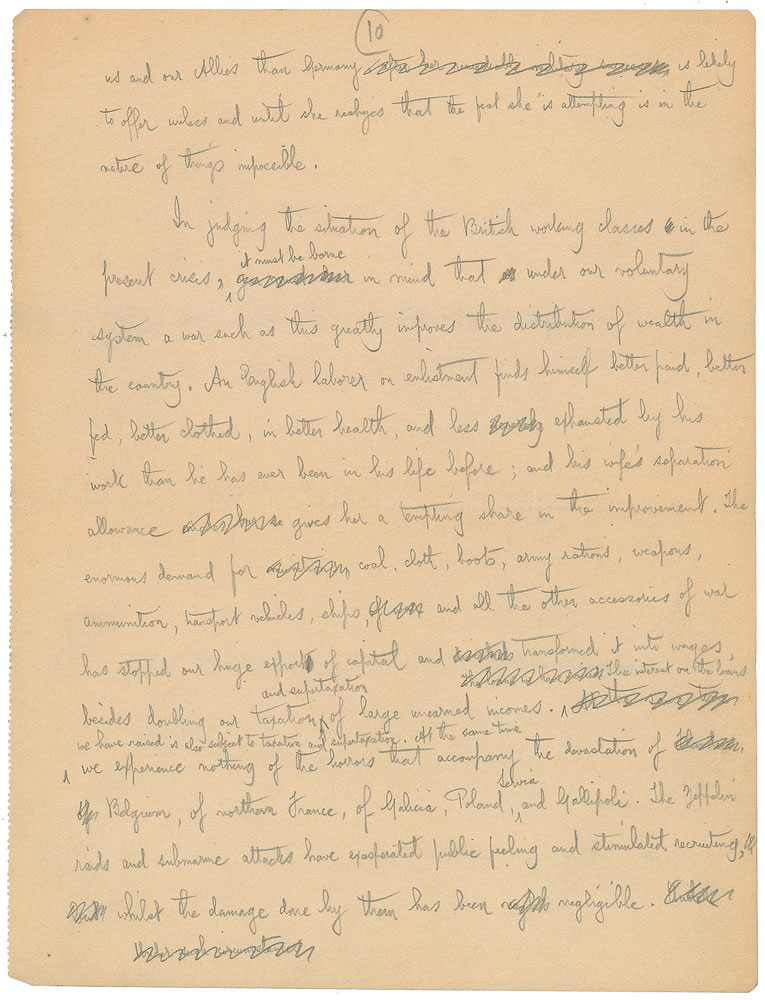 10
us and our Allies than Germany is likely
to offer unless and until she realizes that the feat she is attempting is in the
nature of things impossible.
In judging the situation of the British working classes in the
present crisis, it must be borne in mind that under our voluntary
system a war such as this greatly improves the distribution of wealth in
the country. An English laborer on enlistment finds himself better paid, better
fed, better clothed, in better health, and less exhausted by his
work than he has ever been in his life before; and his wife's separation
allowance gives her a tempting share in the improvement. The
enormous demand for coal, cloth, boots, army rations, weapons,
ammunition, transport vehicles, ships, and all the other accessories of war
has stopped our huge export of capital and transformed it into wages,
besides doubling our taxation and supertaxation of large unearned incomes. The interest on the loans
we have raised is also subject to taxation and supertaxation. At the same time
we experience nothing of the horrors that accompany the devastation of
Belgium, of northern France, of Galicia, Poland, Servia and Gallipoli. The Zeppelin
raids and submarine attacks have exasperated public feeling and stimulated recruiting,
whilst the damage done by them has been negligible.